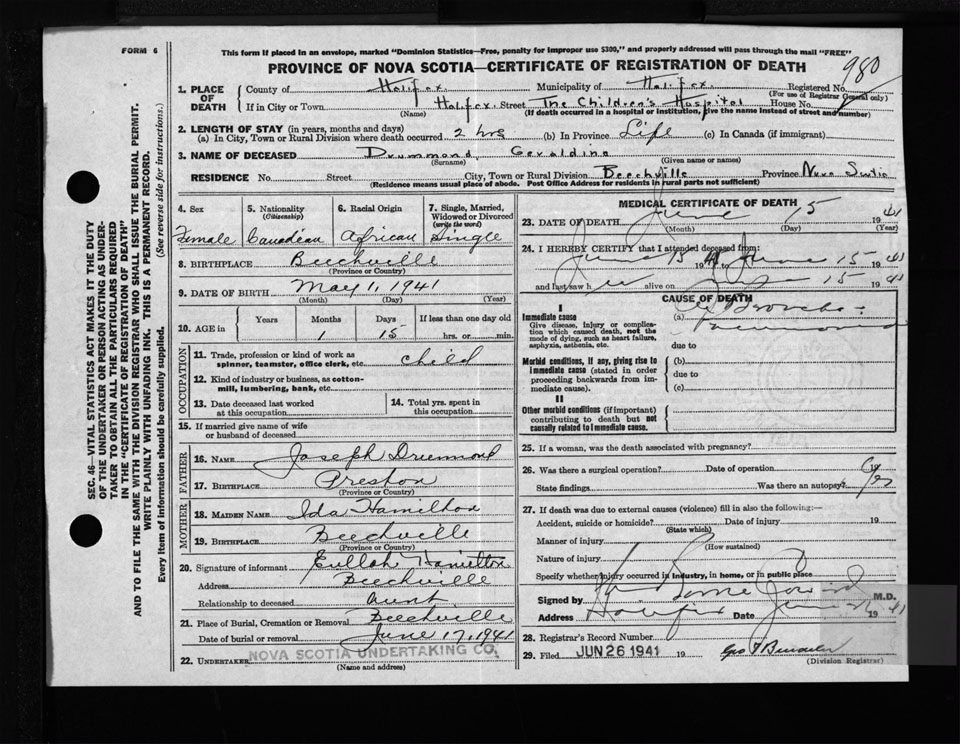 FORM 6
This form if placed in an envelope, marked "Dominion Statistics—Free, penalty for improper use $300," and properly addressed will pass through the mail "FREE"
PROVINCE OF NOVA SCOTIA—CERTIFICATE OF REGISTRATION OF DEATH
980
1. PLACE OF DEATH
County of Halifax Municipality of Halifax Registered No.
(For use of Registrar General only)
If in City or Town Halifax Street The Children's Hospital House No.
(Name) (If death occurred in a hospital or institution, give the name instead of street and number)
2. LENGTH OF STAY (in years, months and days)
(a) In City, Town or Rural Division where death occurred 2 hrs (b) In Province Life (c) In Canada (if immigrant)
3. NAME OF DECEASED Drummond, Geraldine
(Surname) (Given name or names)
RESIDENCE No. Street City, Town or Rural Division Beechville Province Nova Scotia
(Residence means usual place of abode. Post Office Address for residents in rural parts not sufficient)
4. Sex Female
5. Nationality (Citizenship) Canadian
6. Racial Origin African
7. Single, Married, Widowed or Divorced (write the word) Single
8. BIRTHPLACE Beechville
(Province or Country)
9. DATE OF BIRTH May 11, 1941
(Month) (Day) (Year)
10. AGE in Years Months Days If less than one day old
1 15 hrs. or min.
OCCUPATION
11. Trade, profession or kind of work as spinner, teamster, office clerk, etc. child
12. Kind of industry or business, as cotton-mill, lumbering, bank, etc.
13. Date deceased last worked at this occupation
14. Total yrs. spent in this occupation
15. If married give name of wife or husband of deceased
FATHER
16. NAME Joseph Drummond
17. BIRTHPLACE Preston
(Province or Country)
MOTHER
18. MAIDEN NAME Ida Hamilton
19. BIRTHPLACE Beechville
(Province or Country)
20. Signature of informant Hamilton
Address Beechville
Relationship to deceased Aunt
21. Place of Burial, Cremation or Removal Beechville
Date of burial or removal June 17, 1941
22. UNDERTAKER NOVA SCOTIA UNDERTAKING CO.
(Name and address)
MEDICAL CERTIFICATE OF DEATH
23. DATE OF DEATH June 15 1941
(Month) (Day) (Year)
24. I HEREBY CERTIFY that I attended deceased from:
June 15 1941 June 15 1941
and last saw h er alive on June 15 1941
CAUSE OF DEATH
I
Immediate cause
Give disease, injury or complication which caused death, not the mode of dying, such as heart failure, asphyxia, asthenia, etc.
(a) Broncho-
pneumonia
due to
Morbid conditions, if any, giving rise to immediate cause (stated in order proceeding backwards from immediate cause).
(b)
due to
(c)
II
Other morbid conditions (if important) contributing to death but not causally related to immediate cause.
25. If a woman, was the death associated with pregnancy?
26. Was there a surgical operation? Date of operation 19
State findings Was there an autopsy? Yes
27. If death was due to external causes (violence) fill in also the following:—
Accident, suicide or homicide? Date of injury 19
(State which)
Manner of injury
(How sustained)
Nature of injury
Specify whether injury occurred in industry, in home, or in public place
Signed by M.D.
Address Halifax Date June 1941
28. Registrar's Record Number
29. Filed JUN 26 1941 19
(Division Registrar)
SEC. 46—VITAL STATISTICS ACT MAKES IT THE DUTY
OF THE UNDERTAKER OR PERSON ACTING AS UNDER-
TAKER TO OBTAIN ALL THE PARTICULARS REQUIRED
IN THE "CERTIFICATE OF REGISTRATION OF DEATH"
AND TO FILE THE SAME WITH THE DIVISION REGISTRAR WHO SHALL ISSUE THE BURIAL PERMIT.
WRITE PLAINLY WITH UNFADING INK. THIS IS A PERMANENT RECORD.
Every item of information should be carefully supplied. (See reverse side for instructions.)